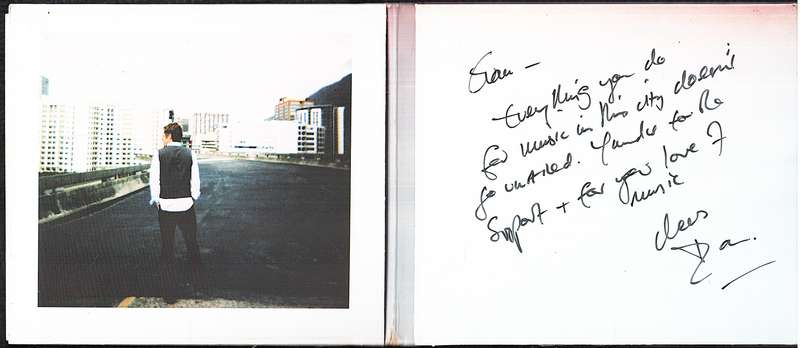 –
Everything you do
for music in this city doesn't
go unnoticed. Thanks for the
Support + for your love of
music
Cheers
Dan.